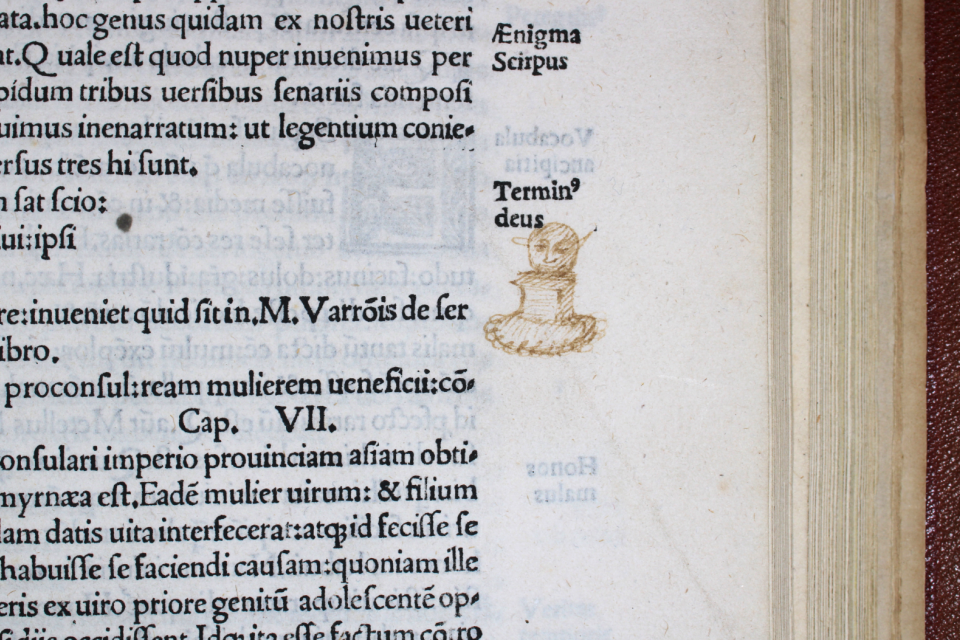 ata.hoc genus quidam ex noſtris ueteri
nt.Q uale eſt quod nuper inuenimus per
pidum tribus uerſibus ſenariis compoſi
uimus inenarratum: ut legentium conie-
erſus tres hi ſunt.
n ſat ſcio:
ſui:ipſi
re:inueniet quid ſit in.M.Varrōis de ſer
ibro.
proconſul:ream mulierem ueneficii:cō-
Cap. VII.
onſulari imperio prouinciam aſiam obti-
myrnæa eſt.Eadē mulier uirum: & filium
dam datis uita interfecerat:atqꝫ id feciſſe ſe
habuiſſe ſe faciendi cauſam:quoniam ille
eris ex uiro priore genitū adoleſcentē op-
ſidiis occidiſſent.Idqꝫ ita eſſe factum
Ænigma
Scirpus
Terminꝰ
deus